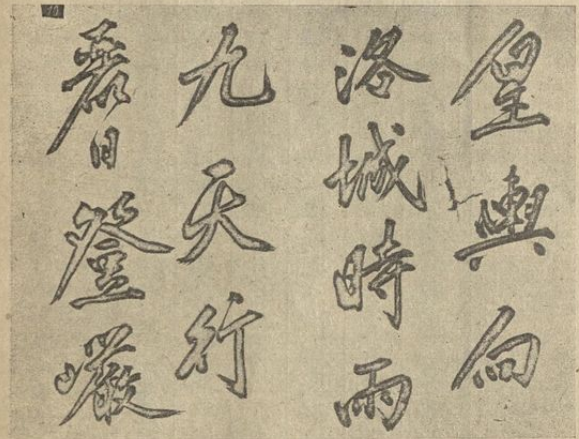 皇輿向
洛城時雨
九天行
麗日登巖